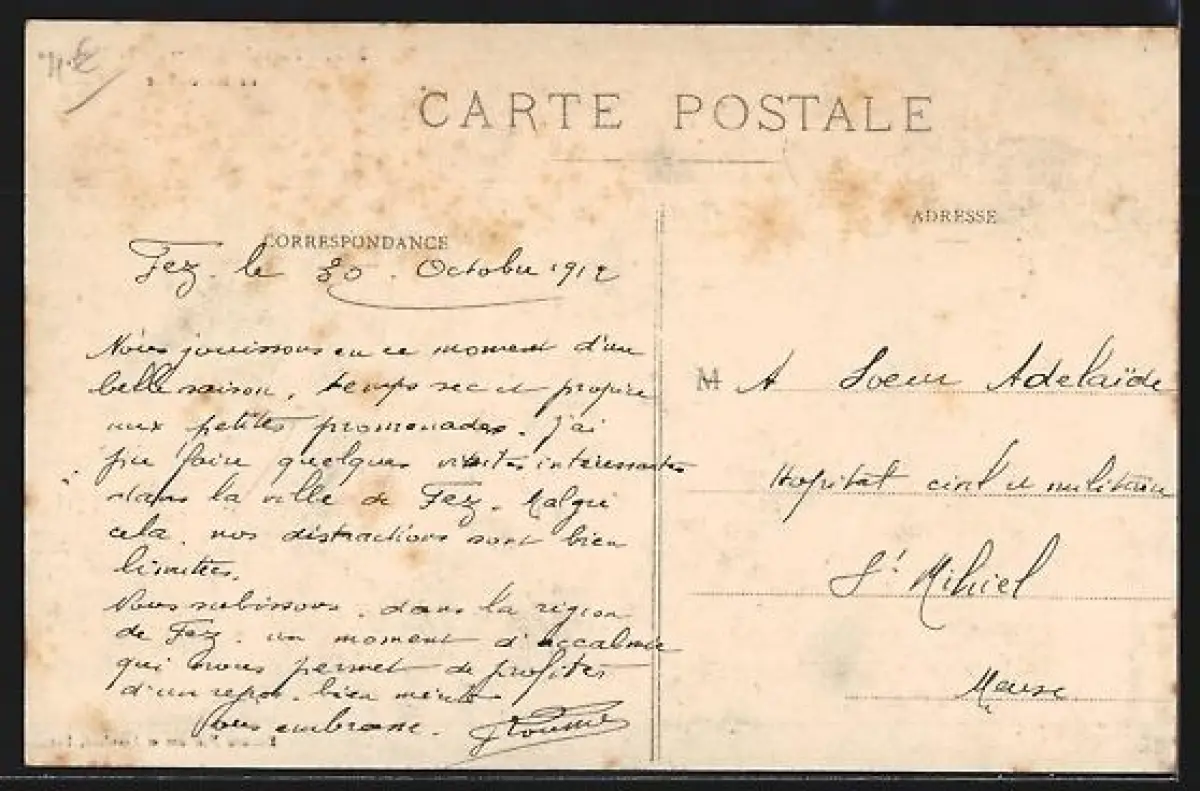 CARTE POSTALE
CORRESPONDANCE
ADRESSE
Fez. le 30. Octobre 1912
Nous jouissons en ce moment d'une
belle saison, temps sec et propice
aux petites promenades. J'ai
pu faire quelques visites intéressantes
dans la ville de Fez. Malgré
cela, nos distractions sont bien
limitées.
Nous subissons, dans la région
de Fez, un moment d'accalmie
qui nous permet de profiter
d'un repos bien mérité
Vous embrasse.
M A Soeur Adelaïde
Hopital civil et militaire
St Mihiel
Meuse